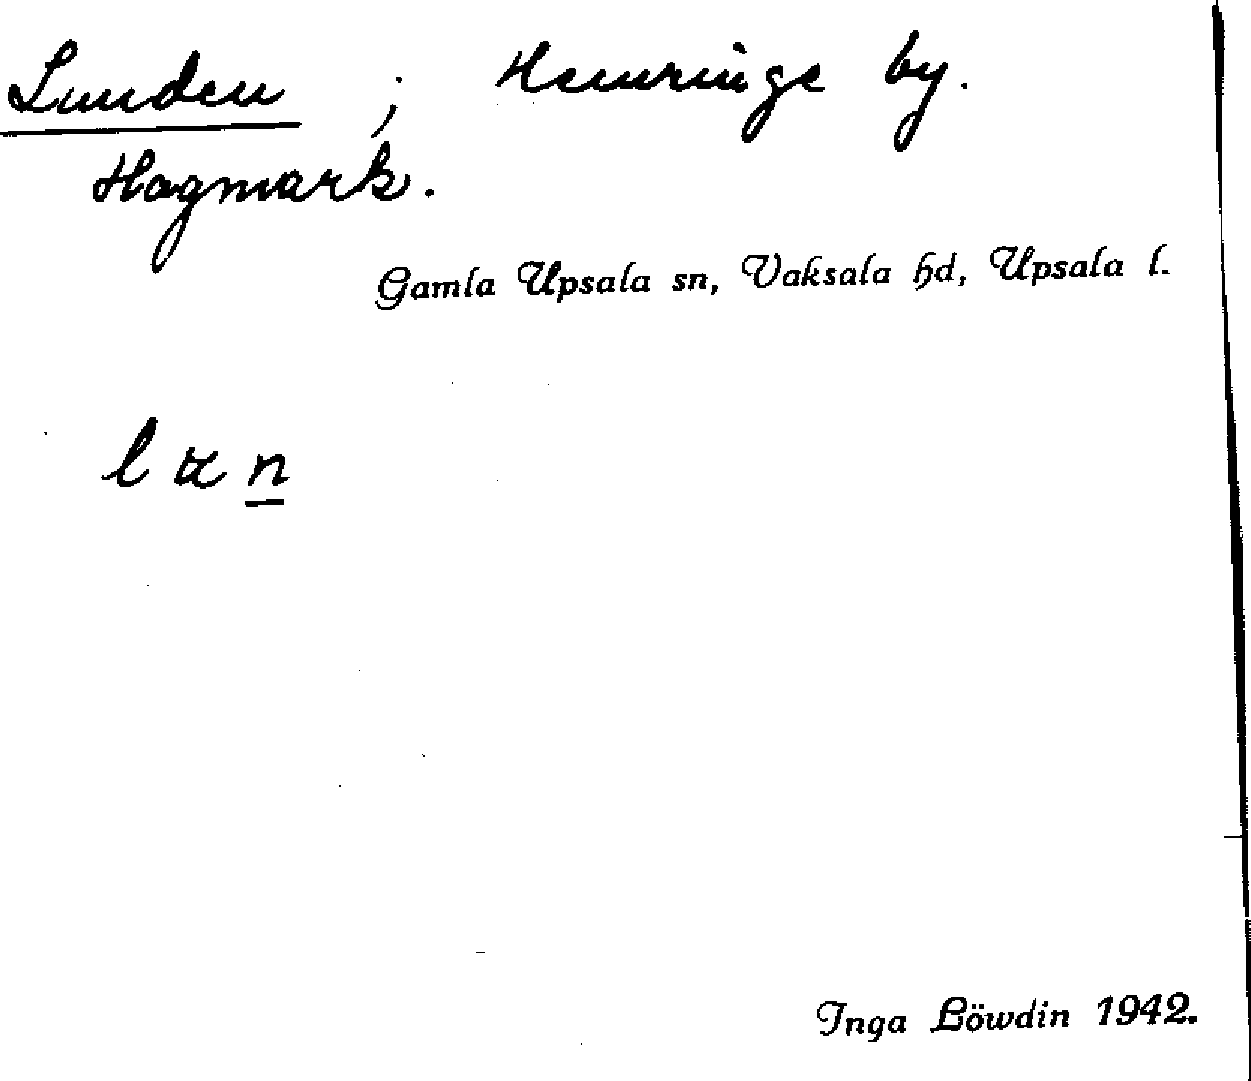 Lunden ; Hemringe by.
Hagmark.
Gamla Upsala sn, Vaksala hd, Upsala l.
Inga Löwdin 1942.